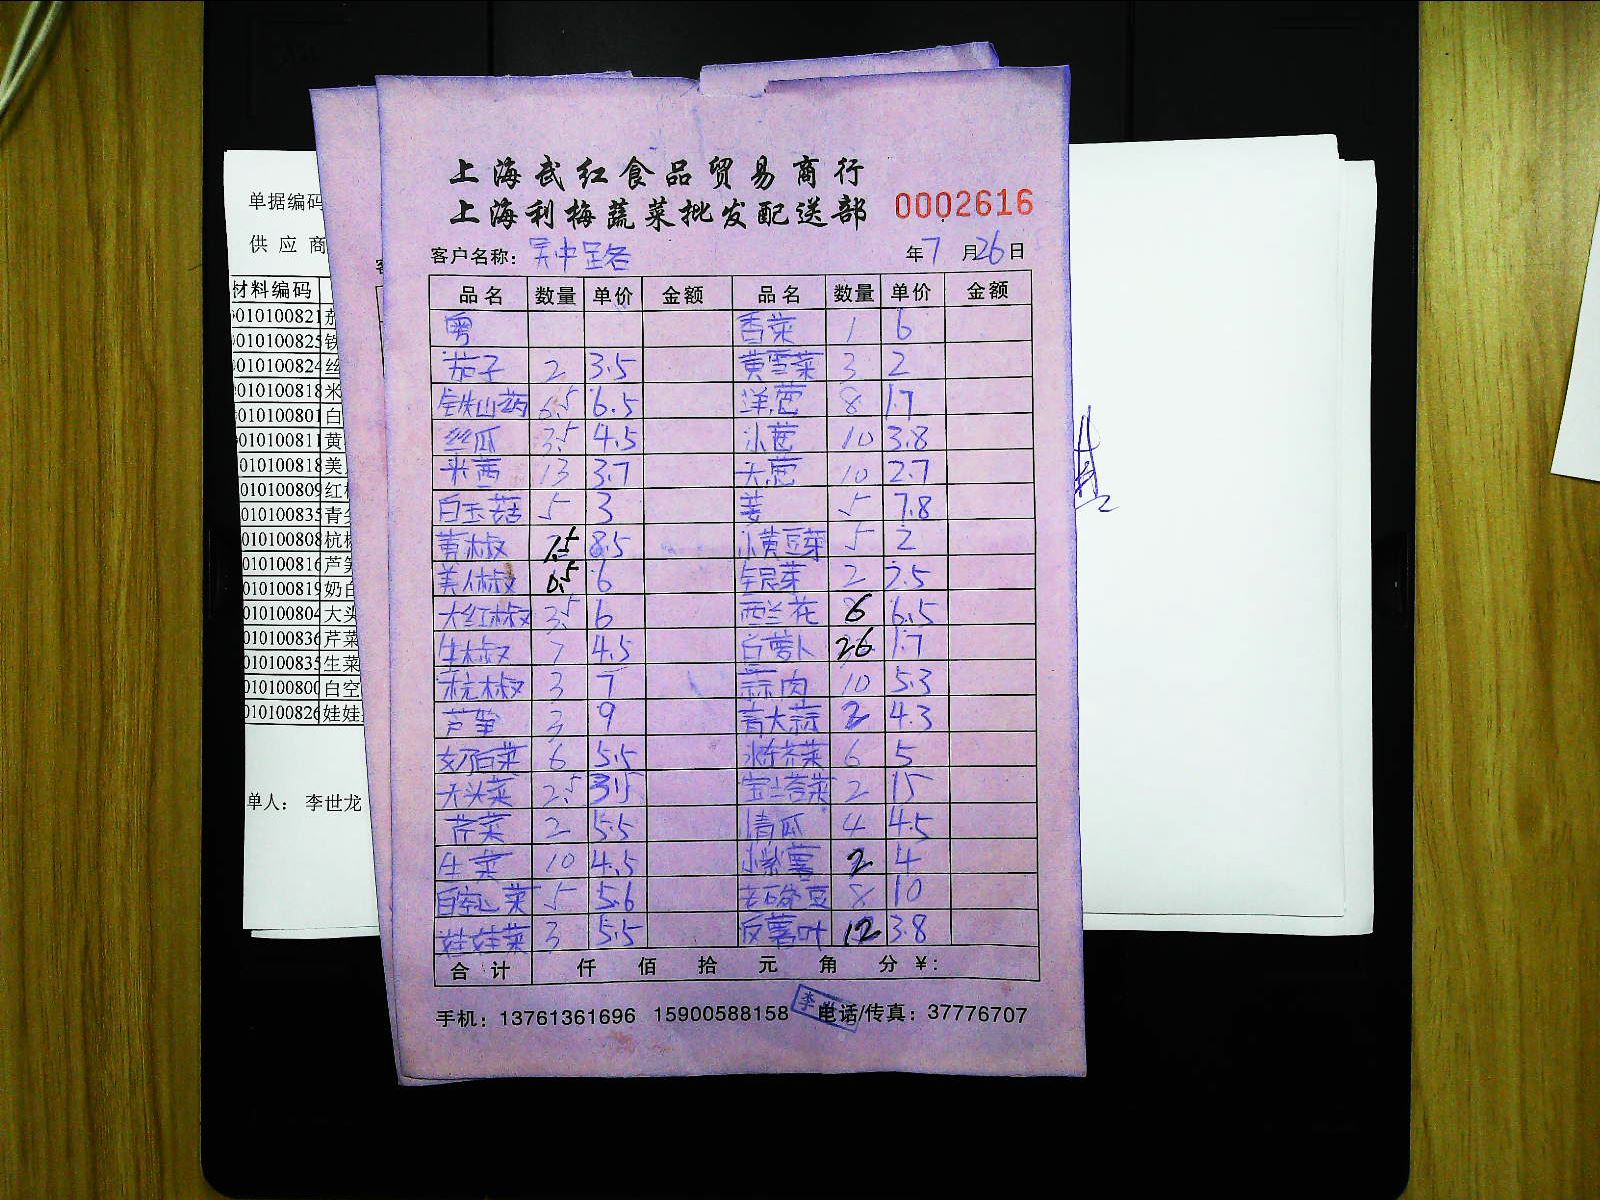 上海武红食品贸易商行
上海利梅蔬菜批发配送部
0002616
客户名称: 吴中路
年7月26日
品名 数量 单价 金额 品名 数量 单价 金额
粤 香菜 1 6
茄子 2 3.5 黄雪菜 3 2
铁山药 6.5 6.5 洋葱 8 1.7
丝瓜 3.5 4.5 小葱 10 3.8
米西 13 3.7 大葱 10 2.7
白玉菇 5 3 姜 5 7.8
黄椒 7.5 8.5 小黄豆芽 5 2
美人椒 0.5 6 银芽 2 2.5
大红椒 3.5 6 西兰花 6 6.5
牛椒 7 4.5 白萝卜 26 1.7
杭椒 3 7 蒜肉 10 5.3
芦笋 3 9 青大蒜 2 4.3
奶白菜 6 5.5 水东芥菜 6 5
大头菜 2.5 3.5 宝塔菜 2 15
芹菜 2 5.5 青瓜 4 4.5
生菜 10 4.5 小紫薯 2 4
白空心菜 5 5.6 豆 8 10
娃娃菜 3 5.5 反薯叶 12 3.8
合计 仟 佰 拾 元 角 分 ¥:
手机: 13761361696 15900588158 电话/传真: 37776707
单据编码
供应商
材料编码
010100821 茄
010100825 铁
010100824 丝
010100818 米
010100801 白
010100811 黄
010100818 美
010100809 红
010100835 青
010100808 杭
010100816 芦
010100819 奶白
010100804 大头
010100836 芹菜
010100835 生菜
010100800 白空
010100826 娃娃
单人: 李世龙